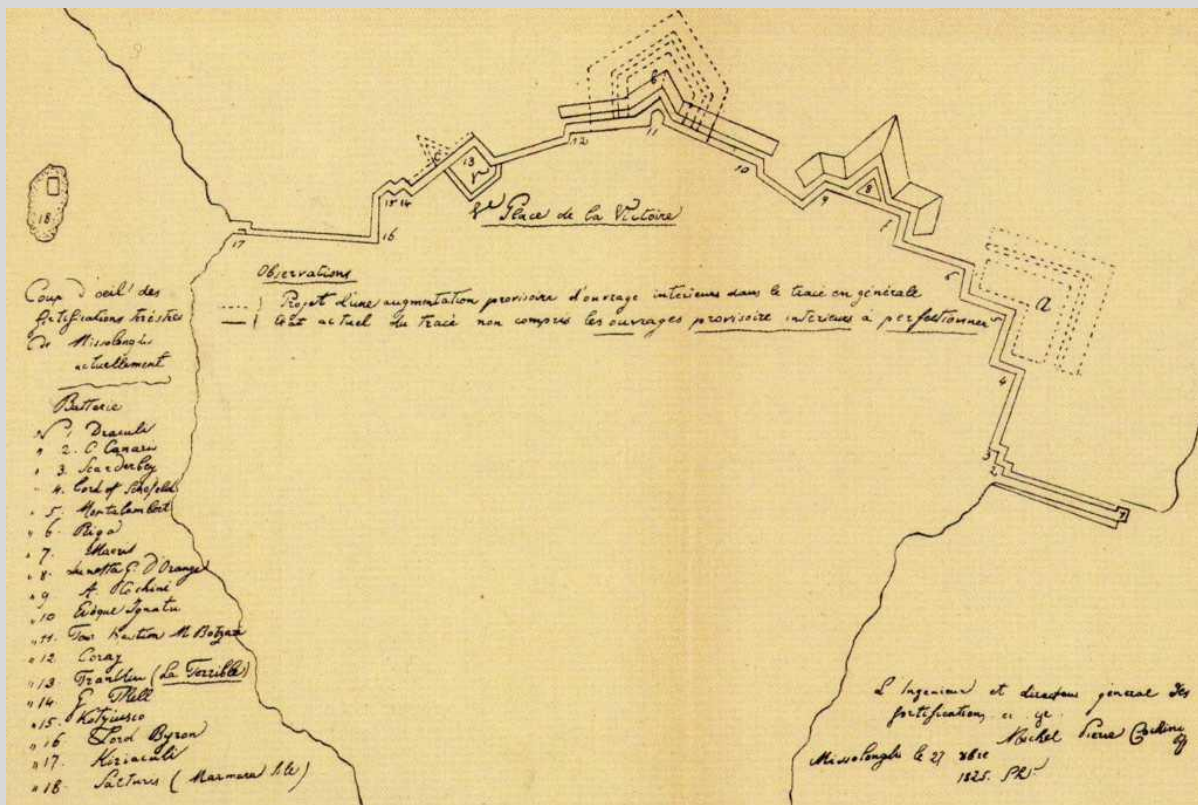 Place de la Victoire
Observations
Projet d'une augmentation provisoire d'ouvrage interieurs dans le tracé en générale
état actuel du tracé non compris les ouvrages provisoire interieurs à perfectionner
Coup d'oeil des
fortifications
de Missolonghi
actuellement
Batterie
N 1 Draculi
" 2. C Canaris
" 3. Scanderbey
" 4. Lord of
" 5. Montalembert
" 6. Riga
" 7.
" 8. Lunette G. D'Orange
" 9 A. Cochini
" 10 Evêque Ignatu
" 11. Bastion M Botzari
" 12 Coray
" 13. Franklin (La Terrible)
" 14. G Thell
" 15. Kotziusco
" 16 Lord Byron
" 17. Kiriaculi
" 18 Sactures (Marmara Isle)
18
17
16
15 14
13
12
11
10
9
8
4
3
2
L'Ingenieur et directeur général des
fortifications
Michel Pierre Cochini
Missolonghi le 27 8bre
1825.